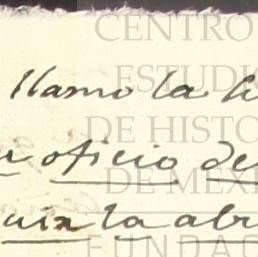 CENTRO
ESTUDIO
DE HISTO
DE MEXI
FUNDAC
llamo la
oficio de
la abr